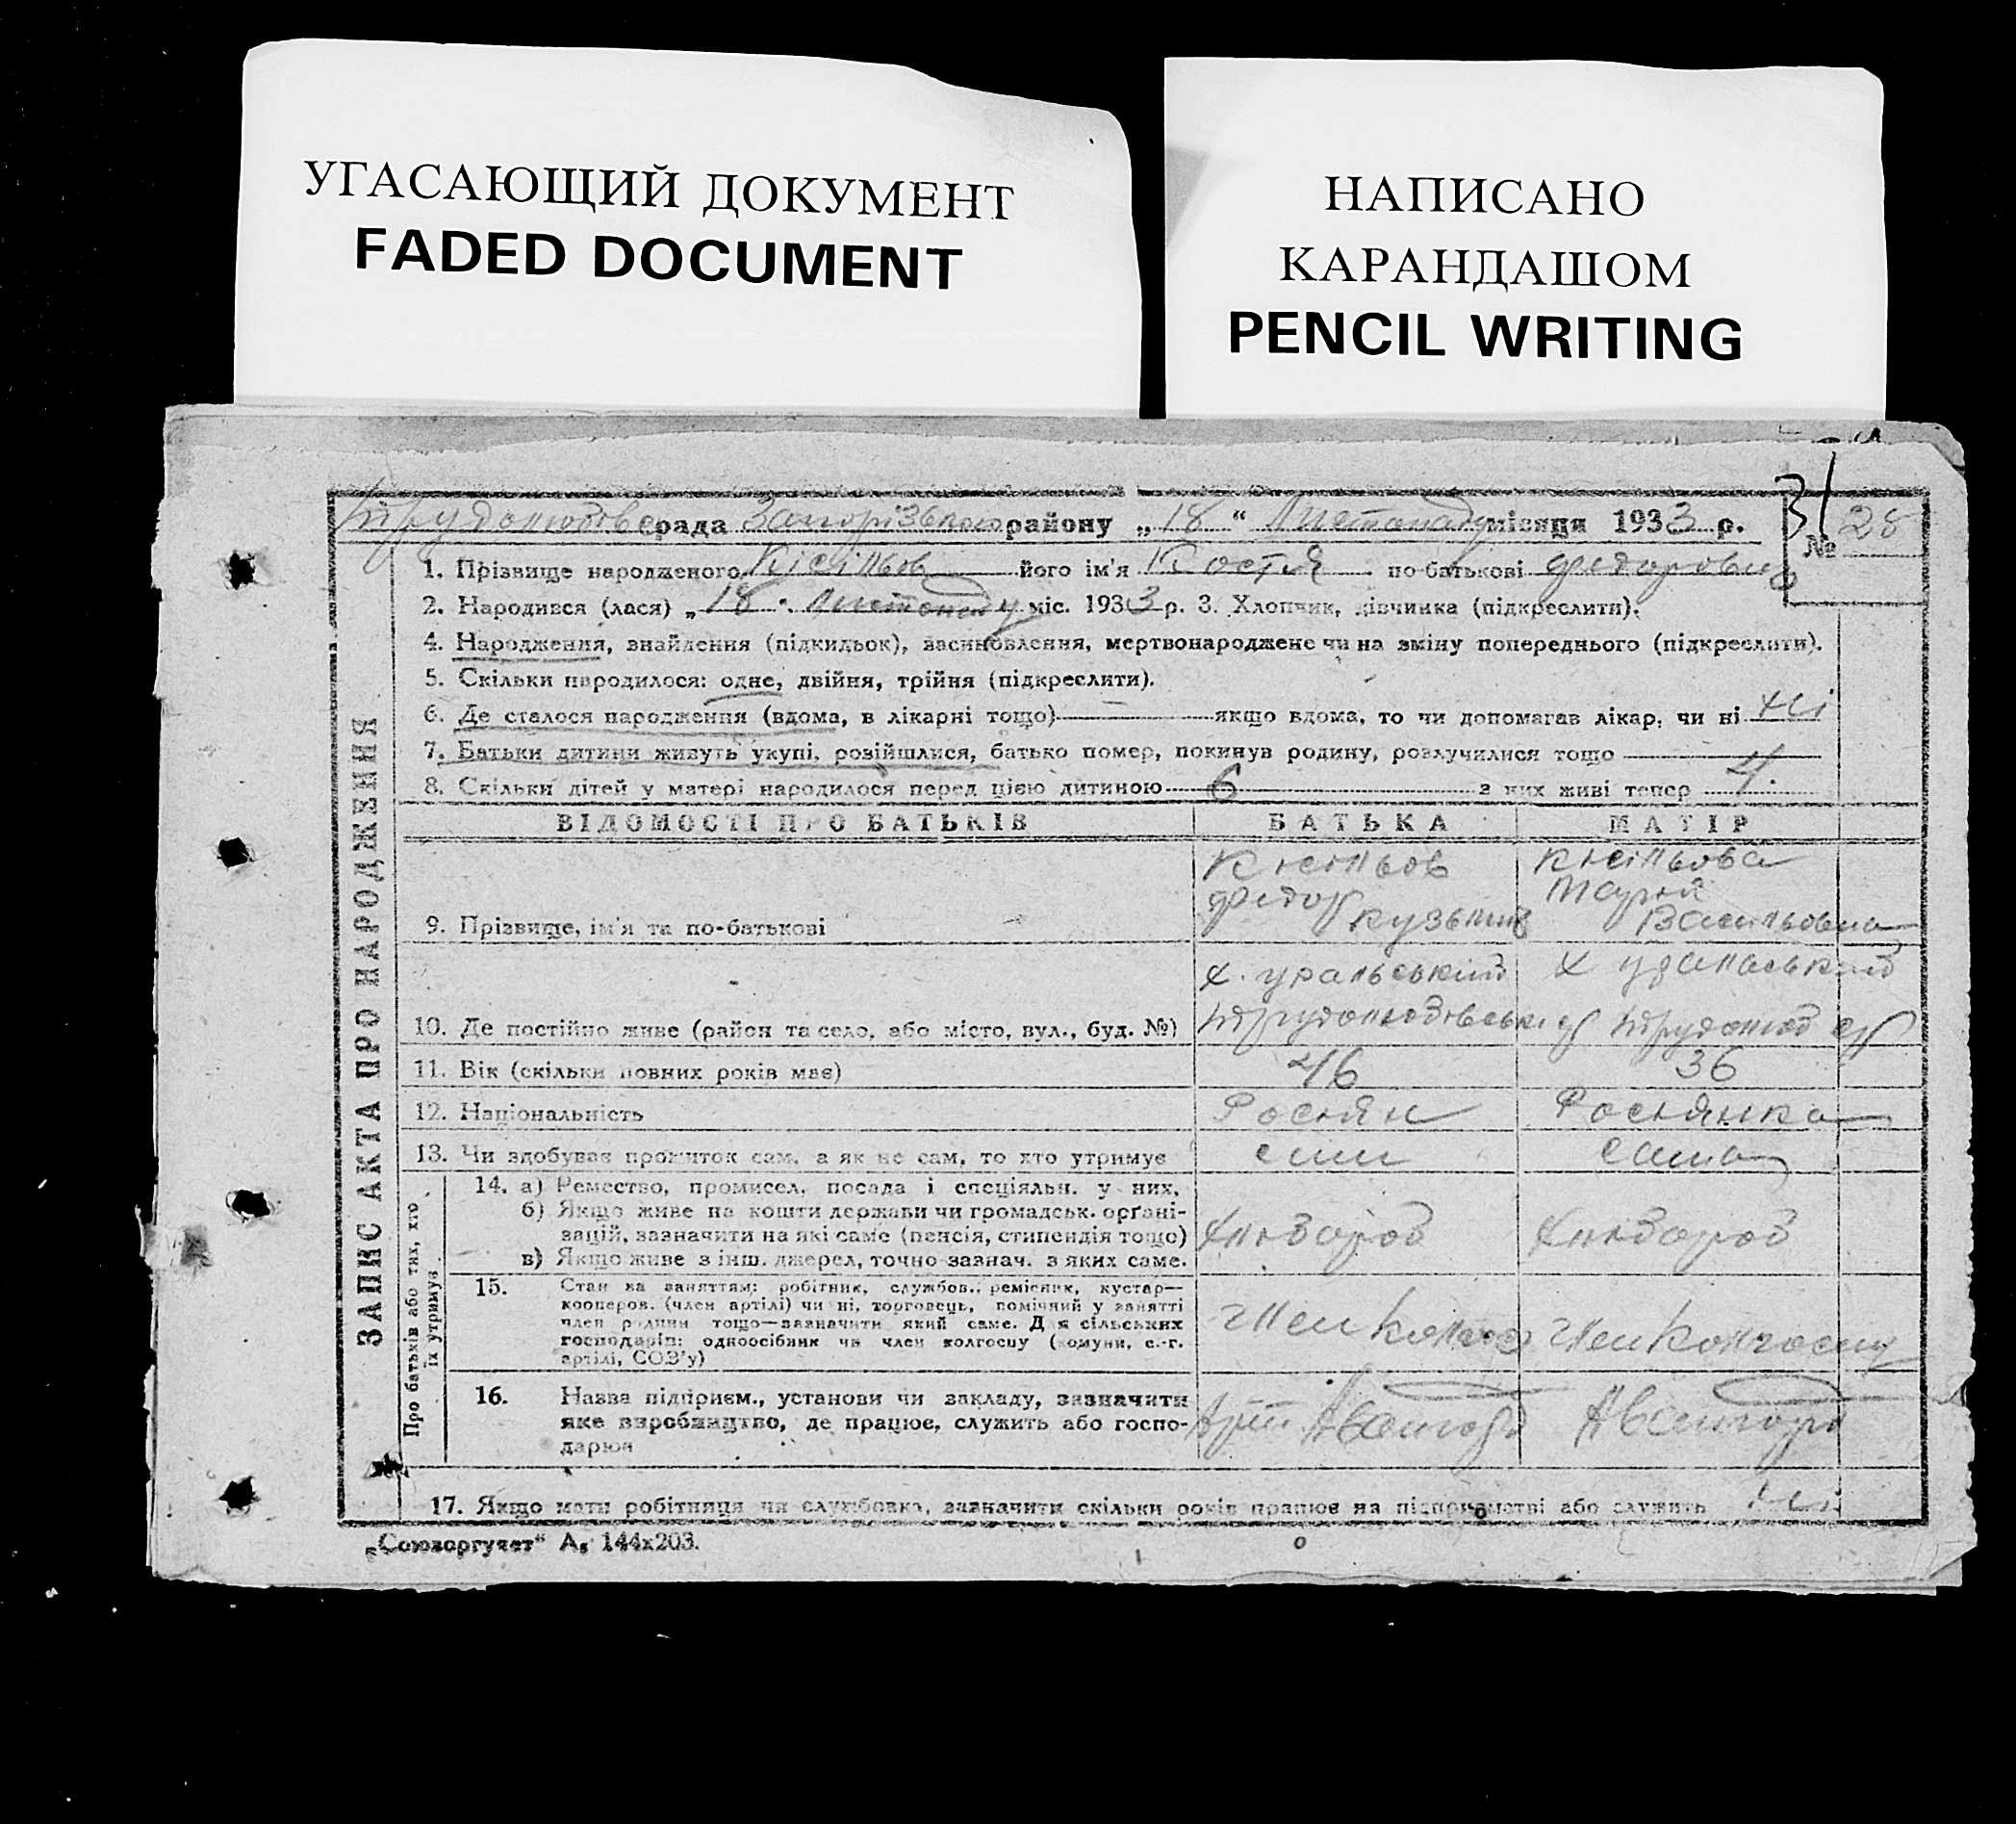 УГАСАЮЩИЙ ДОКУМЕНТ
FADED DOCUMENT
НАПИСАНО
КАРАНДАШОМ
PENCIL WRITING
31
рада Запорізького району „18“ Листопаду місяця 1933 р.
№ 28
1. Прізвище народженого Кісільов його ім'я Костя по-батькові Федорович
2. Народився (лася) „18" листопаду міс. 1933 р. 3. Хлопчик, дівчинка (підкреслити).
4. Народження, знайдення (підкидьок), засиновлення, мертвонароджене чи на зміну попереднього (підкреслити).
5. Скільки народилося: одне, двійня, трійня (підкреслити).
6. Де сталося народження (вдома, в лікарні тощо) якщо вдома, то чи допомагав лікар, чи ні Ні
7. Батьки дитини живуть укупі, розійшлися, батько помер, покинув родину, розлучилися тощо
8. Скільки дітей у матері народилося перед цією дитиною 6 з них живі тепер 4.
ЗАПИС АКТА ПРО НАРОДЖЕННЯ
ВІДОМОСТІ ПРО БАТЬКІВ БАТЬКА МАТІР
Кісільов Кісільова
Федор Марія
9. Прізвище, ім'я та по-батькові Кузьмив Васильовна
х. уральський х уральський
10. Де постійно живе (район та село, або місто, вул., буд. №)
11. Вік (скільки повних років має) 46 36
12. Національність Росіян Росіянка
13. Чи здобуває прожиток сам, а як не сам, то хто утримує сам сама
Про батьків або тих, хто
їх утримує
14. а) Ремество, промисел, посада і спеціяльн. у них,
б) Якщо живе на кошти держави чи громадськ. орґані-
зацій, зазначити на які саме (пенсія, стипендія тощо) Хлібороб Хлібороб
в) Якщо живе з інш. джерел, точно зазнач. з яких саме.
15. Стан за заняттям: робітник, службов., ремісник, кустар—
кооперов. (член артілі) чи ні, торговець, помічний у занятті
член родини тощо—зазначити який саме. Для сільських
господарів: одноосібник чи член колгоспу (комуни, с.-г.
артілі, СОЗ'у)
Член Член колгоспу
16. Назва підприєм., установи чи закладу, зазначити
яке виробництво, де працює, служить або госпо-
дарює
17. Якщо мати робітниця чи службовка, зазначити скільки років працює на підприємстві або служить Ні
„Союзоргучет“ А₅ 144х203.